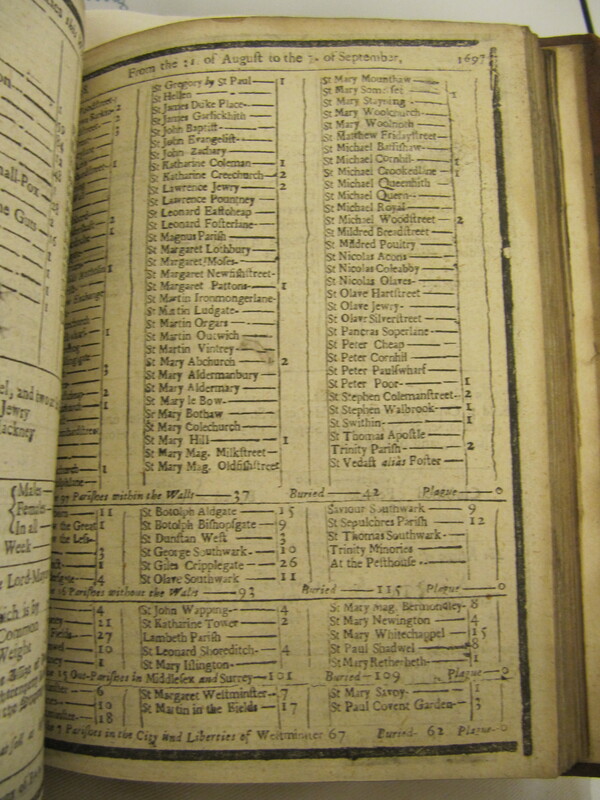 From the 31. of August to the 7. of September, 1697
St Gregory by St Paul — 1
St Hellen
St James Duke Place
St James Garlickhith
St John Baptist
St John Evangelist
St John Zachary
St Katharine Coleman — 1
St Katharine Creechurch — 2
St Lawrence Jewry — 2
St Lawrence Pountney
St Leonard Eastcheap
St Leonard Fosterlane
St Magnus Parish
St Margaret Lothbury
St Margaret Moses
St Margaret Newfishstreet
St Margaret Pattons — 1
St Martin Ironmongerlane
St Martin Ludgate
St Martin Orgars
St Martin Outwich
St Martin Vintrey
St Mary Abchurch — 2
St Mary Aldermanbury
St Mary Aldermary
St Mary le Bow
St Mary Bothaw
St Mary Colechurch
St Mary Hill — 1
St Mary Mag. Milkstreet
St Mary Mag. Oldfishstreet
St Mary Mounthaw
St Mary Somerset — 1
St Mary Stayning
St Mary Woolchurch
St Mary Woolnoth
St Matthew Fridaystreet
St Michael Bassishaw
St Michael Cornhil — 1
St Michael Crookedlane — 1
St Michael Queenhith
St Michael Quern
St Michael Royal
St Michael Woodstreet — 2
St Mildred Breadstreet
St Mildred Poultry
St Nicolas Acons
St Nicolas Coleabby
St Nicolas Olaves
St Olave Hartstreet
St Olave Jewry
St Olave Silverstreet
St Pancras Soperlane
St Peter Cheap
St Peter Cornhil
St Peter Paulswharf
St Peter Poor — 1
St Stephen Colemanstreet — 2
St Stephen Walbrook — 1
St Swithin — 1
St Thomas Apostle
Trinity Parish — 2
St Vedast alias Foster
97 Parishes within the Walls — 37 Buried — 42 Plague — 0
St Botolph Aldgate — 15
St Botolph Bishopsgate — 9
St Dunstan West — 3
St George Southwark — 10
St Giles Cripplegate — 26
St Olave Southwark — 11
Saviour Southwark — 9
St Sepulchres Parish — 12
St Thomas Southwark
Trinity Minories
At the Pesthouse
16 Parishes without the Walls — 93 Buried — 115 Plague — 0
St John Wapping — 4
St Katharine Tower — 2
Lambeth Parish
St Leonard Shoreditch — 4
St Mary Islington
St Mary Mag. Bermondsey — 8
St Mary Newington — 4
St Mary Whitechappel — 15
St Paul Shadwel — 8
St Mary Retherheth — 1
15 Out-Parishes in Middlesex and Surrey — 101 Buried — 109 Plague — 0
St Margaret Westminster — 7
St Martin in the Fields — 17
St Mary Savoy — 1
St Paul Covent Garden — 3
7 Parishes in the City and Liberties of Westminster 67 Buried — 62 Plague — 0